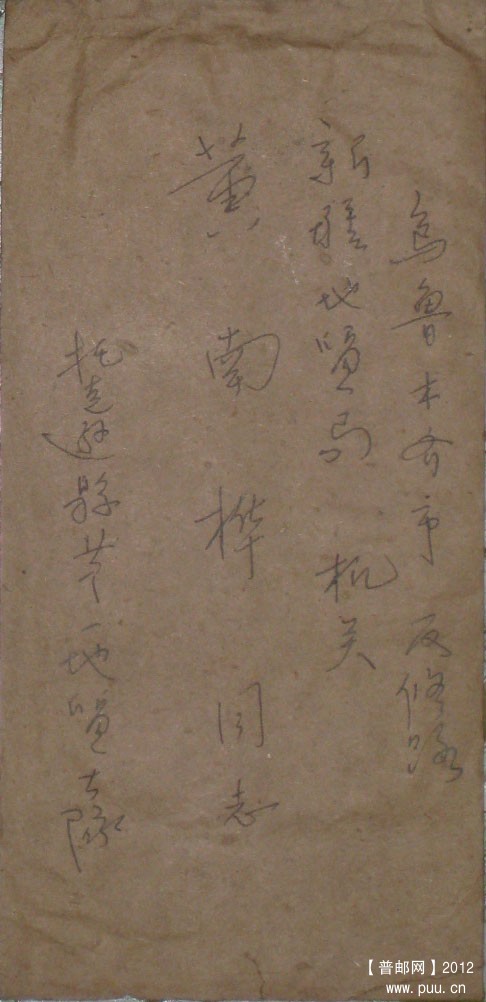 乌鲁木齐市 反修路
新疆地质局 机关
黄南桦 同志
托克逊縣第一地质大隊
【普邮网】2012
www.puu.cn